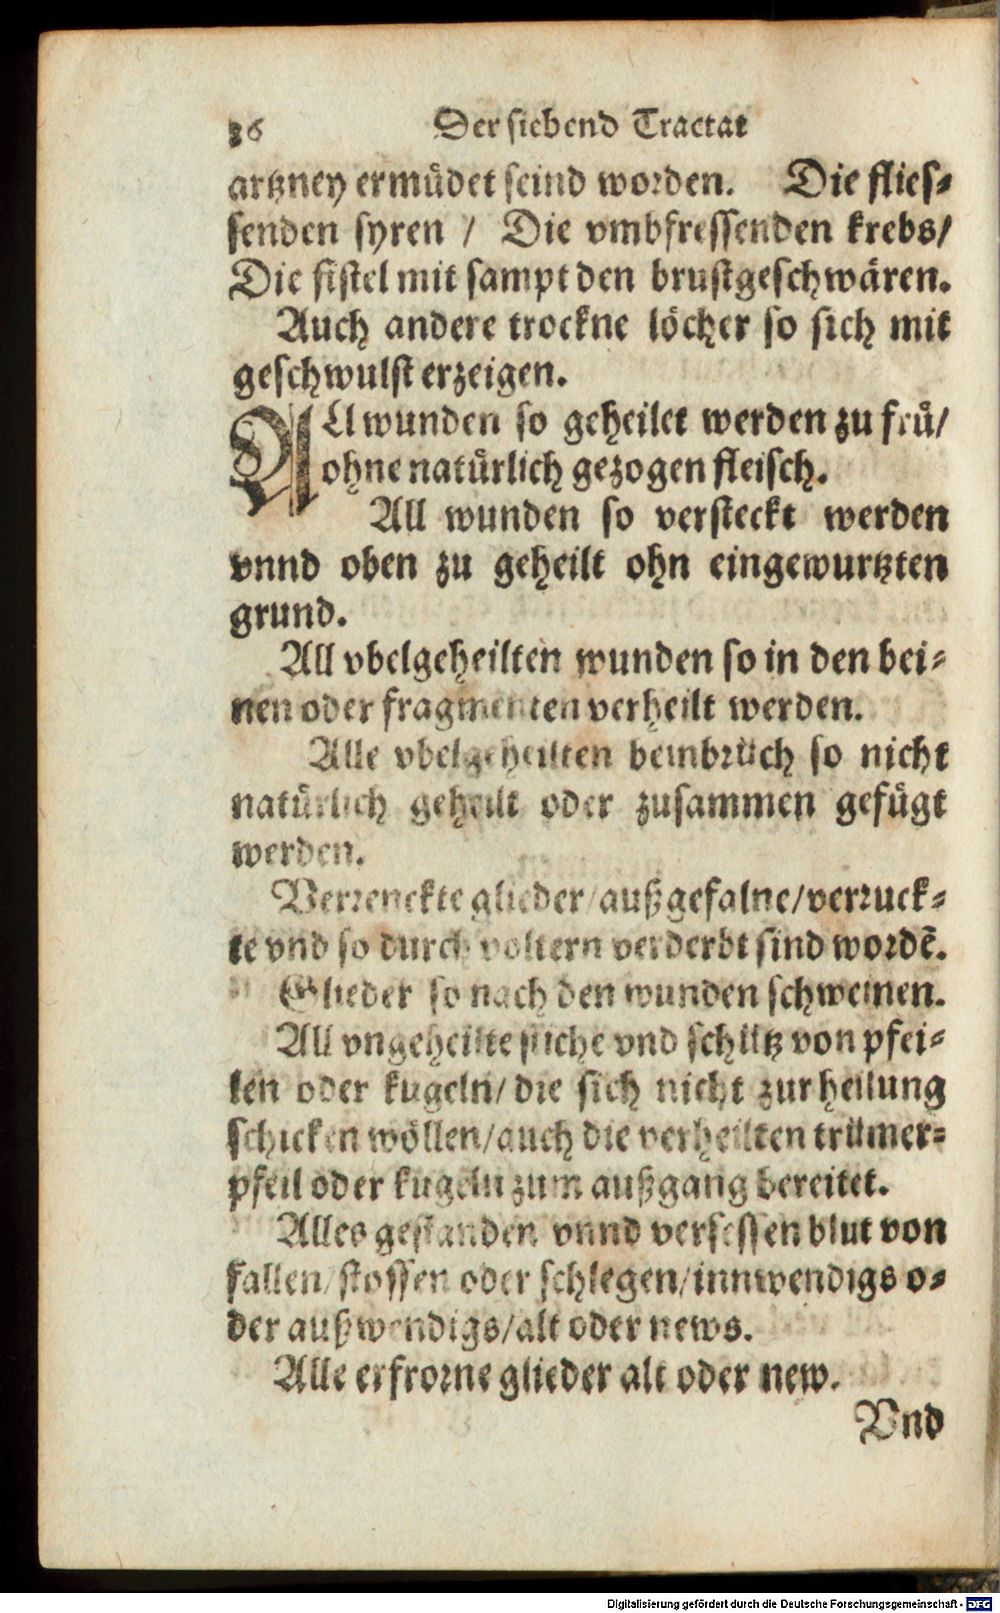 36 Der siebend Tractat
artzney ermüdet seind worden. Die flies-
senden syren / Die vmbfressenden krebs/
Die fistel mit sampt den brustgeschwären.
Auch andere trockne löcher so sich mit
geschwulst erzeigen.
All wunden so geheilet werden zu frü/
ohne natürlich gezogen fleisch.
All wunden so versteckt werden
vnnd oben zu geheilt ohn eingewurtzten
grund.
All vbelgeheilten wunden so in den bei-
nen oder fragmenten verheilt werden.
Alle vbelgeheilten beinbrüch so nicht
natürlich geheilt oder zusammen gefügt
werden.
Verrenckte glieder/außgefalne/verruck-
te vnd so durch voltern verderbt sind wordē.
Glieder so nach den wunden schweinen.
All vngeheilte stiche vnd schütz von pfei-
len oder kugeln/die sich nicht zur heilung
schicken wöllen/auch die verheilten trümer-
pfeil oder kugeln zum außgang bereitet.
Alles gestanden vnnd versessen blut von
fallen/stossen oder schlegen/innwendigs o-
der außwendigs/alt oder news.
Alle erfrorne glieder alt oder new.
Vnd
Digitalisierung gefördert durch die Deutsche Forschungsgemeinschaft - DFG